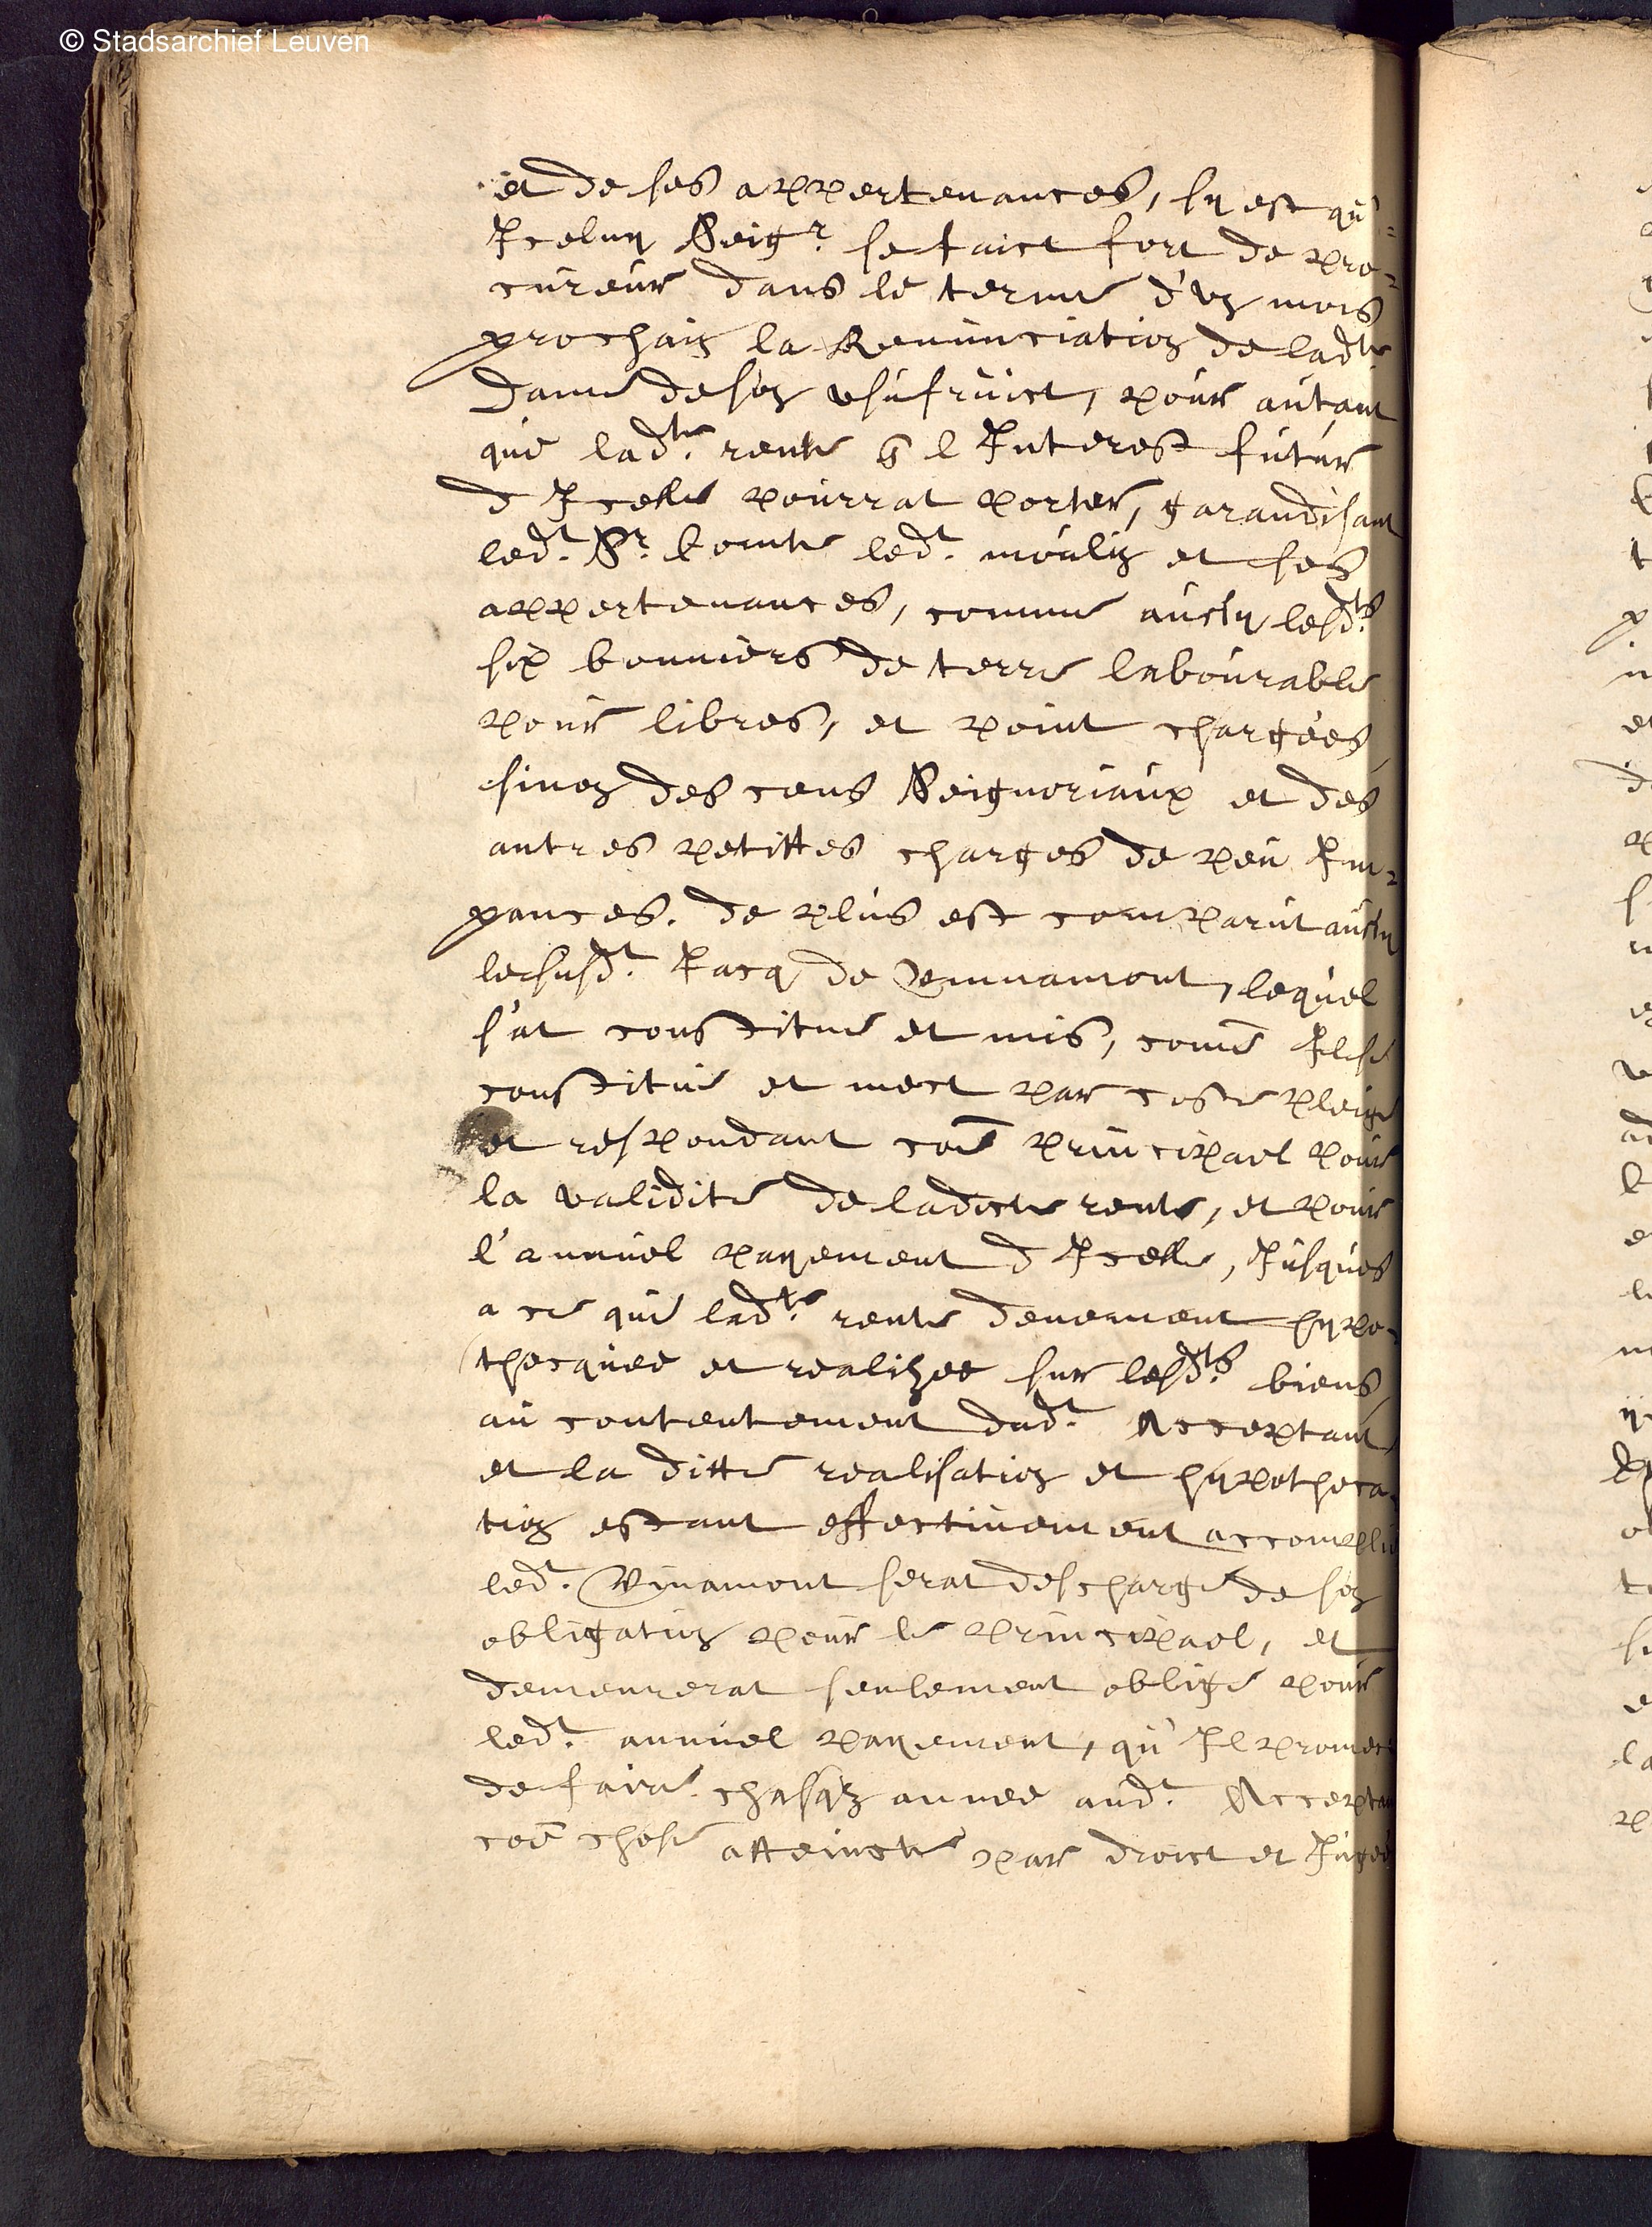 © Stadsarchief Leuven
et de ses appertenances, sy est qu'=
Iceluy Seigr. se faict fort de pro=
cureur dans le terme d'un mois
prochain la Renunciation de ladte
dame de son usufruict, pour autant
que ladte. rente & l'Interest futur
d'Icelle pourrat porter, garandisant
ledt. Sr. Comte ledt. moulin et ses
appertenances, comme aussy lesdts.
six bonniers de terre labourable
pour libres, et point chargees,
sinon des cens Seignoriaux et des
autres petittes charges de peu Im=
pances. de plus est comparut aussy
le susdt. Jacq de Vinnamont, lequel
s'at constitue et mis, come Il se
constitue et mect par ceste pleige
et respondant coe principael pour
la validite de ladicte rente, et pour
l'annuel payement d'Icelle, Jusques
a ce que ladte. rente deuement hypo=
thecquee et realizee sur lesdts. biens,
au contentement dudt. Acceptant,
et la ditte realisation et hypotheca=
tion estant effectivement accomplie
ledt. Vinamont serat descharge de son
obligation pour le principael, et
demeurerat seulement oblige pour
ledt. annuel payement, qu'Il promect
de faire chasqun annee audt. Acceptant
coe chose atteincte par droict et Jugee